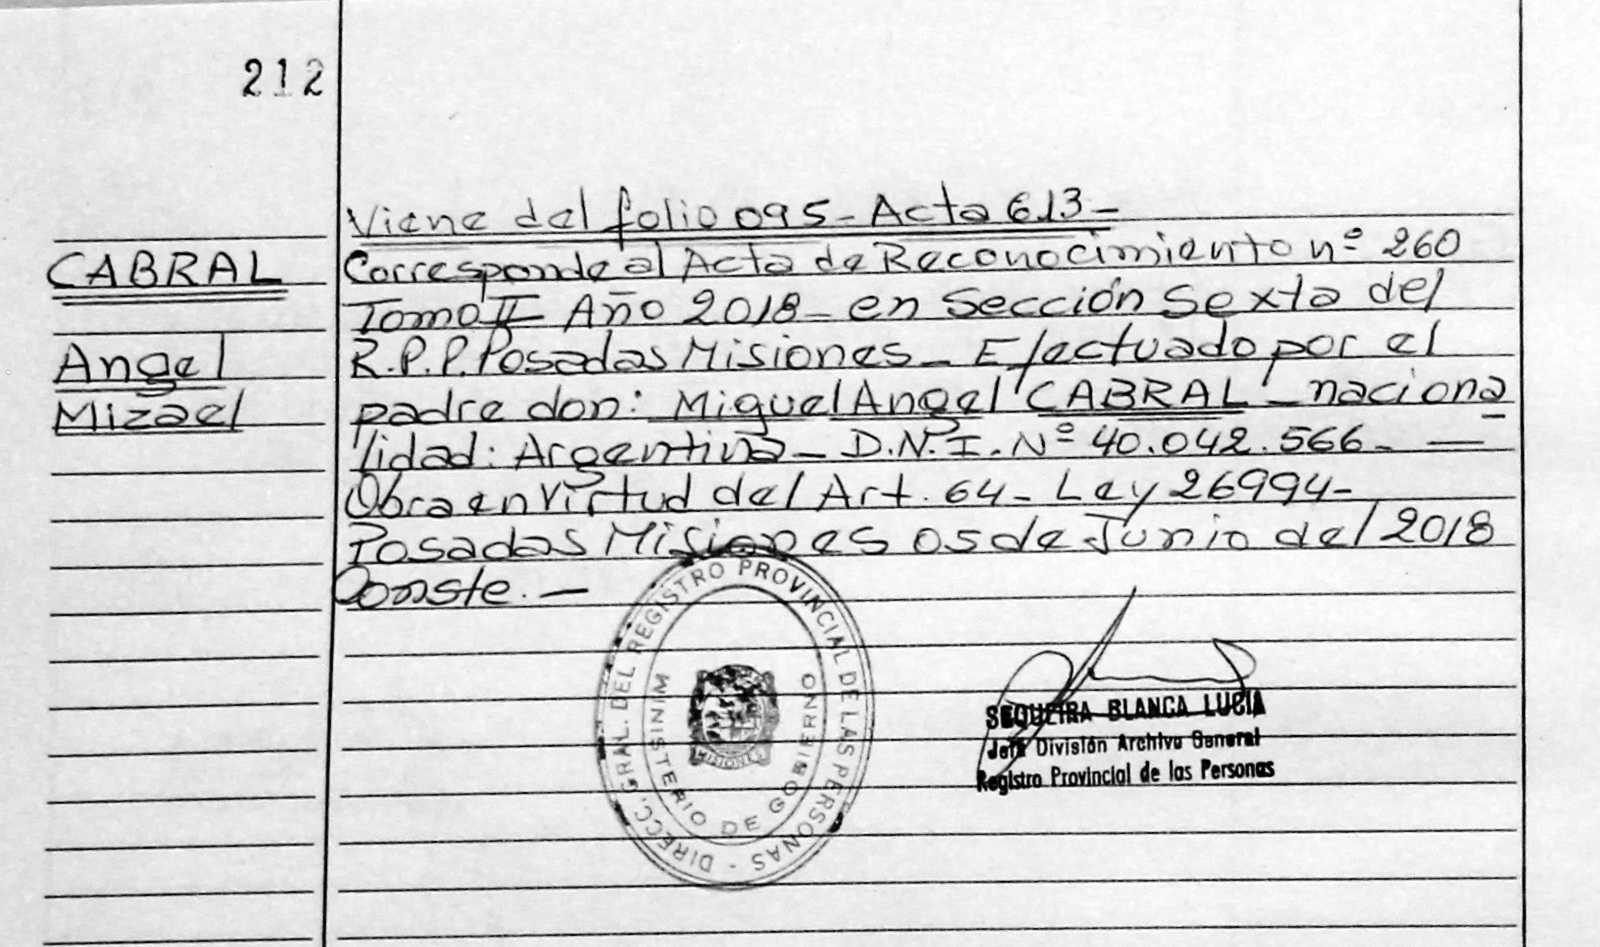 212
CABRAL
Angel
Mizael
Viene del folio 095 - Acta 613 -
Corresponde al Acta de Reconocimiento nº 260
Tomo II Año 2018 - en Sección Sexta del
R.P.P. Posadas Misiones - Efectuado por el
padre don: Miguel Angel CABRAL - naciona
lidad: Argentina - D.N.I. Nº 40.042.566 - —
Obra en Virtud del Art. 64 - Ley 26994 -
Posadas Misiones 05 de Junio del 2018
Conste. —
DIRECC. GRAL. DEL REGISTRO PROVINCIAL DE LAS PERSONAS -
MINISTERIO DE GOBIERNO
MISIONES
SEQUEIRA BLANCA LUCIA
Jefa División Archivo General
Registro Provincial de las Personas